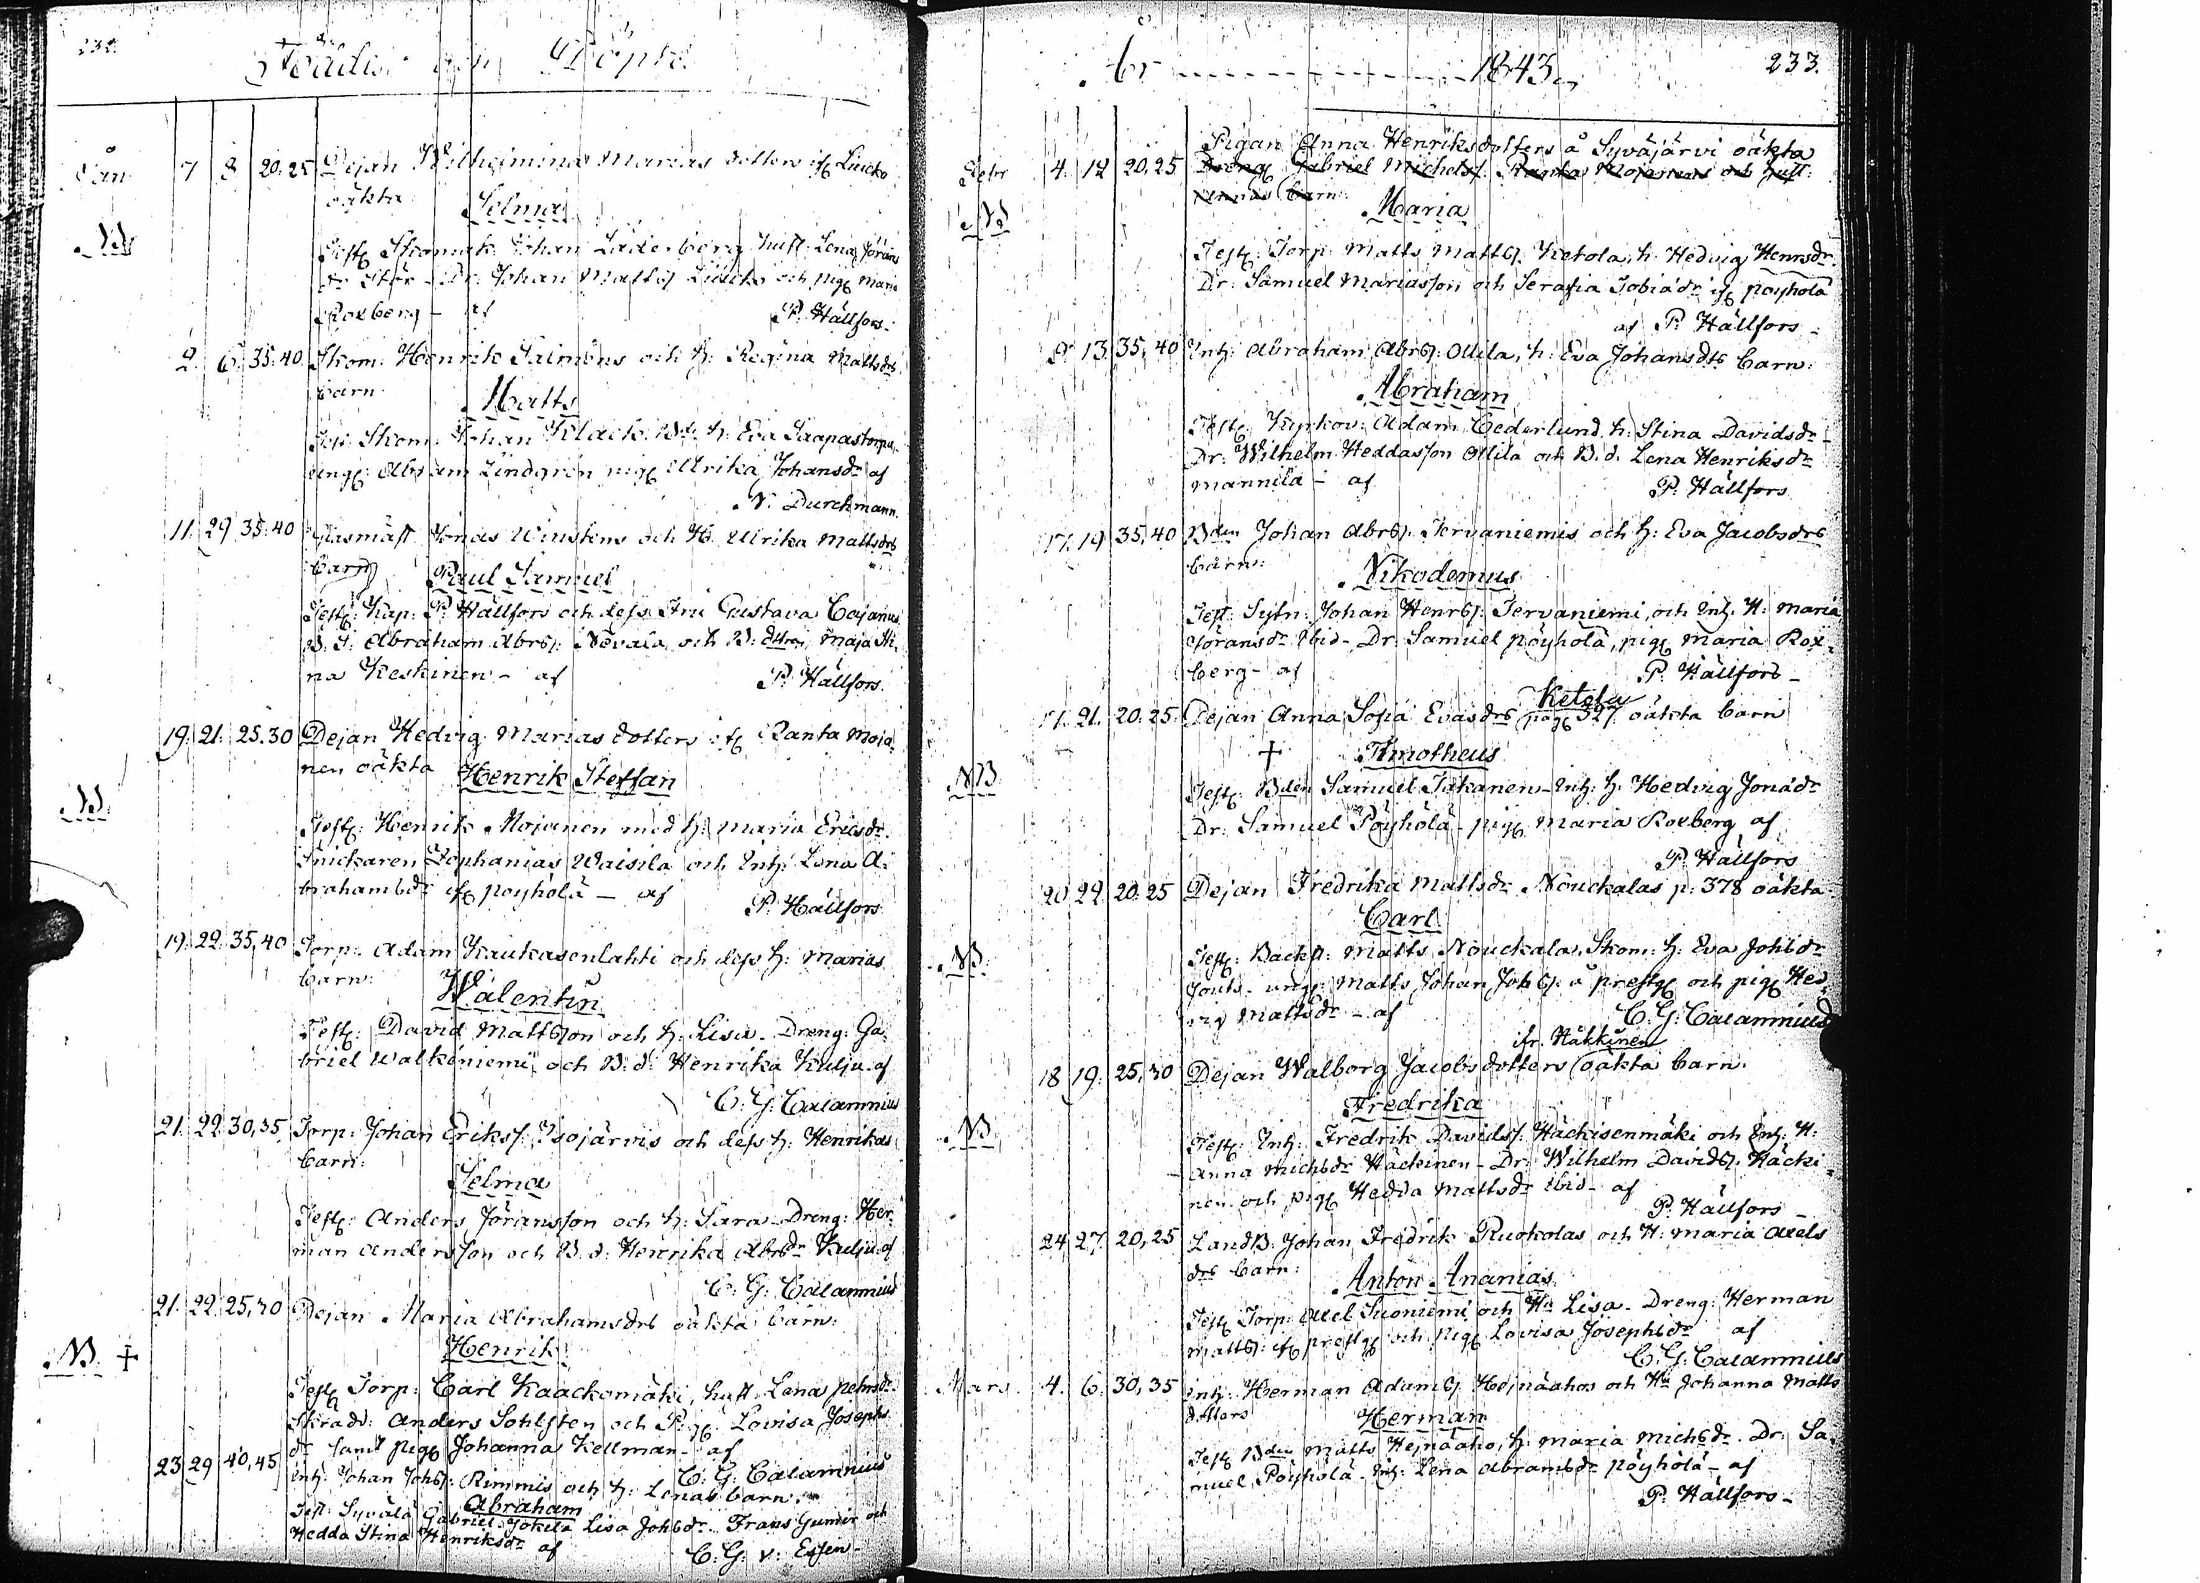 232.
Födde och Döpte
Jan. 7 8 20.25 Dejan Wilhelmina Marias dotters Luicko
oäkta Selma
NB
Test. Skomak. Johan Söderberg hust. Lena Jörans
dr Dr. Johan Matts. Luicko och pig. Maria
Roxberg - af P. Hällfors.
2. 6. 35.40 Skom. Henrik Salmens och h: Regina Mattsdrs
barn Matts
Skom. Johan Klack h: Eva Saapastorpa,
ung: Abram Lindgren pig. Ulrika Johansdr af
N. Durchmann.
11. 29 35.40 Glasmäst Jonas Winstens och H. Ulrika Mattsdrs
barn Paul Samuel
Test: Kap: P. Hällfors och dess Fru Gustava Cajanus
B. S. Abraham Abrs: Nevala och B: Maja Sti.
na Keskinen - af P. Hällfors.
19. 21. 25.30 Dejan Hedvig Marias dotters Ranta Moja
nen oäkta Henrik Steffan
NB.
Test: Henrik Mojanen med h: Maria Ericsdr.
Snickaren Zephanias Waisila och Inh: Lena A.
brahamsdr pöyhölä - af P. Hällfors
19. 22. 35,40 Torp: Adam Kaukasenlahti och dess h: Marias
barn: Walentin
Test: David Mattsson och h: Lisa - Dreng: Ga
briel Walkeniemi, och B. d. Henrika Kulju - af
C. G. Calamnius
21. 22. 30,35 Torp: Johan Eriks. Isojärvis och dess h: Henrikas
barn: Selma
Test: Anders Jöransson och h: Sara - Dreng: Her
man Andersson och B. d. Henrika Abrsdr Kulju af
C. G. Calamnius
21. 22. 25,30 Dejan Maria Abrahamsdrs oäkta barn:
Henrik
NB. +
Test Torp: Carl Kaackomäki, hust. Lena Petersdr.
Skradd: Anders Sohlsten och Pig. Lovisa Josephs
dr samt pig. Johanna Kellman - af
C. G. Calamnius
23 29 40,45 Inh: Johan Johs: Rimmis och h: Lenas barn:
Abraham
Test: Syvälä Gabriel Jokela Lisa Johsdr. Frans Gumer och
Hedda Stina Henriksdr af C. G. v: Essen -
År 1843. 233.
Pigan Anna Henriksdotters å Syväjärvi oäkta
Febr 4. 12 20,25 Dreng Gabriel Michels: Ranka Mojanens och hust.
Annas barn: Maria
NB
Test: Torp: Matts Matts. Ketola, h: Hedvig Henrsdr.
Dr: Samuel Mariasson och Serafia Tobiædr pöyhölä
af P. Hällfors -
8 13 35,40 Inh: Abraham Abrs: Ollila, h: Eva Johansdrs barn:
Abraham
Test: Kypkov: Adam Cederlund, h: Stina Davidsdr -
Dr: Wilhelm Heddasson Ollila och B. d. Lena Henriksdr
Mannila - af P. Hällfors
17. 19 35,40 Bden Johan Abrs: Tervaniemis och h: Eva Jacobsdrs
barn: Nikodemus
Test: Sytn: Johan Henrs: Tervaniemi, och Inh. H: Maria
Jöransdr Ibid - Dr: Samuel Pöyhölä, pig. Maria Rox=
berg - af P. Hällfors -
Ketola
17. 21. 20.25. Dejan Anna Sofia Evasdrs pag 327. oäkta barn
+ Timotheus
NB
Test: Bden Samuel Takanen - Inh: h: Hedvig Jonædr
Dr: Samuel Pöyhölä - pig. Maria Roxberg af
P. Hällfors
20 22 20.25 Dejan Fredrika Mattsdr Nouckalas p: 378 oäkta -
Carl
NB.
Test: Backst: Matts Nouckala, Skom: h: Eva Johsdr
Fouts - ung: Matts Johan Johs: å prestg och pig. Hed
vig Mattsdr - af C. G. Calamnius
fr. Häkkinen
18 19. 25,30 Dejan Walborg Jacobsdotters oäkta barn.
Fredrika
NB
Test: Inh: Fredrik Davids: Häckisenmäki och Inh: H:
Anna Michsdr Häckinen - Dr: Wilhelm Davids: Häcki=
nen och pig. Hedda Mattsdr Ibid - af
P. Hällfors -
24 27. 20,25 Landb: Johan Fredrik Ruokolas och H: Maria Axels
drs barn: Anton Ananias
Test: Torp: Axel Suoniemi och Hu Lisa - Dreng: Herman
Matts: prestg och pig. Lovisa Josephsdr af
C. G. Calamnius
Mars. 4. 6. 30,35 Inh: Herman Adams. Heinäahos och Hu Johanna Matts
dotters Herman
Test Bden Matts Heinäaho, h: Maria Michsdr. Dr: Sa.
muel Pöyhölä - Inh: Lena Abramsdr pöyhölä - af
P. Hällfors -